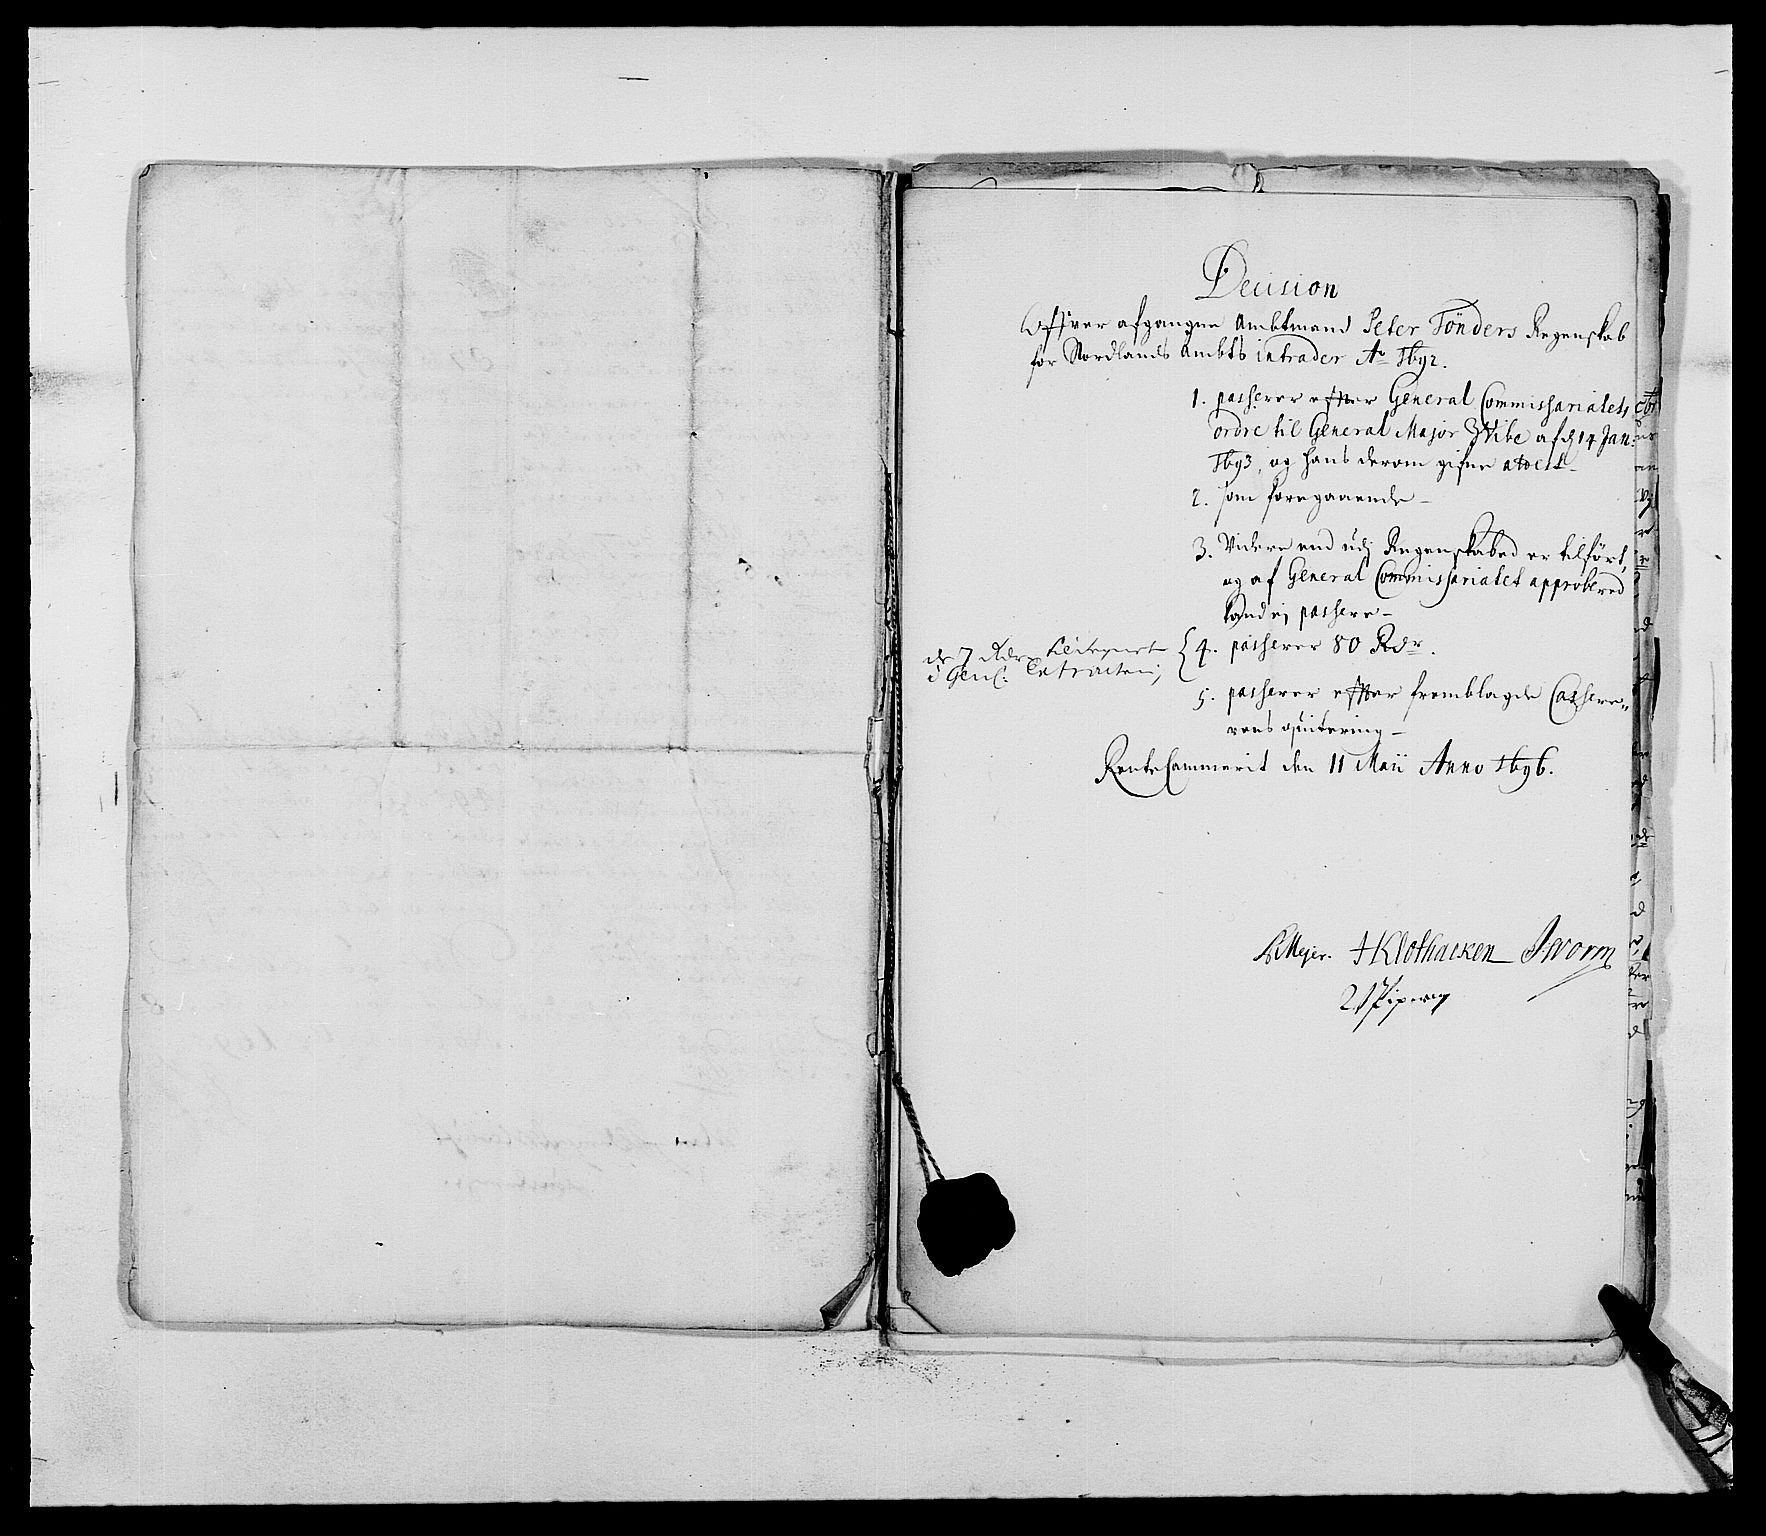 Decision
Offver afgangne Ambtmand Peter Tönders Regenskab
for Nordlands Ambts intrader Ao 1692.
1. passerer effter General Commissariatets
ordre til General Major Wibe af d 14 Jan:
1693, og hans derom gifne attest
2. som foregaaende
3. Videre end udj Regenskabed er tilfört,
og af General Commissariatet approbered
kand ej passere
de 7 Rdr
i Genl: Extracten,
4. passerer 80 Rdr.
5. passerer effter fremblagde Cassere-
rens qvitering
RenteCammerit den 11 Maii Anno 1696.
PMejer. HKlothacken JWorm